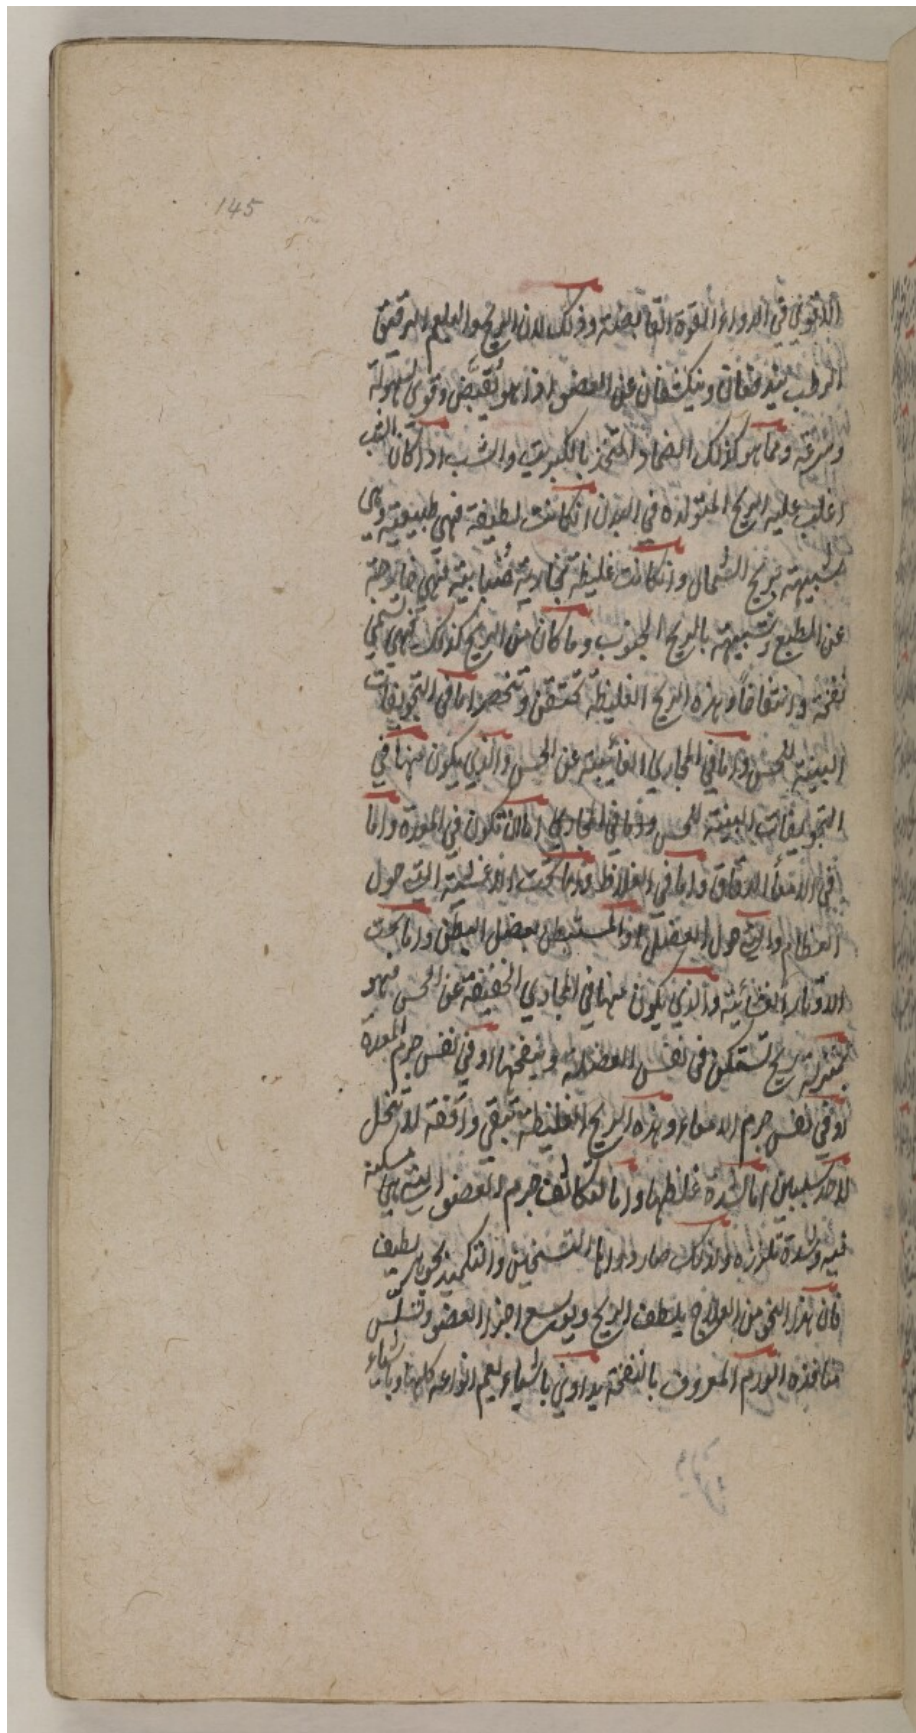 145
الاقوى في الدواء القوة القابضة وذلك لان الريح والبلغم الرقيق
الرطب يندفعان وينكشفان عن العضو اذا هو تقبض وقوى بسهولة
وسرعة ومما هو كذلك الضماد المتخذ بالكبريت والشب اذا كان الشب
اغلب عليه الريح المتولدة في البدن ان كانت لطيفة فهي طبيعية وهي
شبيهة بريح الشمال وان كانت غليظة بخارية ضبابية فهي خارجة
عن الطبع وشبيهة بالريح الجنوب وما كان من الريح كذلك فهي تسمى
نفخة وانتفاخا وهذه الريح الغليظة تحتقن وتنحصر اما في التجويفات
البينة للحس واما في المجاري الغائبة عن الحس والذي يكون منها في
التجويفات البينة للحس واما في المجاري اما ان تكون في المعدة واما
في الامعاء الدقاق واما في الغلاظ واما تحت الاغشية التي حول
العظام والتي حول العضل او المستبطن لعضل البطن واما تحت
الاوتار الغشائية والذي يكون منها في المجاري الخفية عن الحس فهو
بمنزلة ريح تستكن في نفس العضلة وينفخها او في نفس جرم المعدة
او في نفس جرم الامعاء وهذه الريح الغليظة تبقى واقفة لا تنحل
لاحد سببين اما لشدة غلظها واما لتكاثف جرم العضو التي هي مسكنة
فيه ولشدة تلززه ولذلك صار دواؤها التسخين والتكميد بجوهر لطيف
فان هذا النحو من العلاج يلطف الريح ويوسع اجزاء العضو وتسلس
منافذه الورم المعروف بالنفخة يداوى باشياء تعم انواعه كلها وباشياء